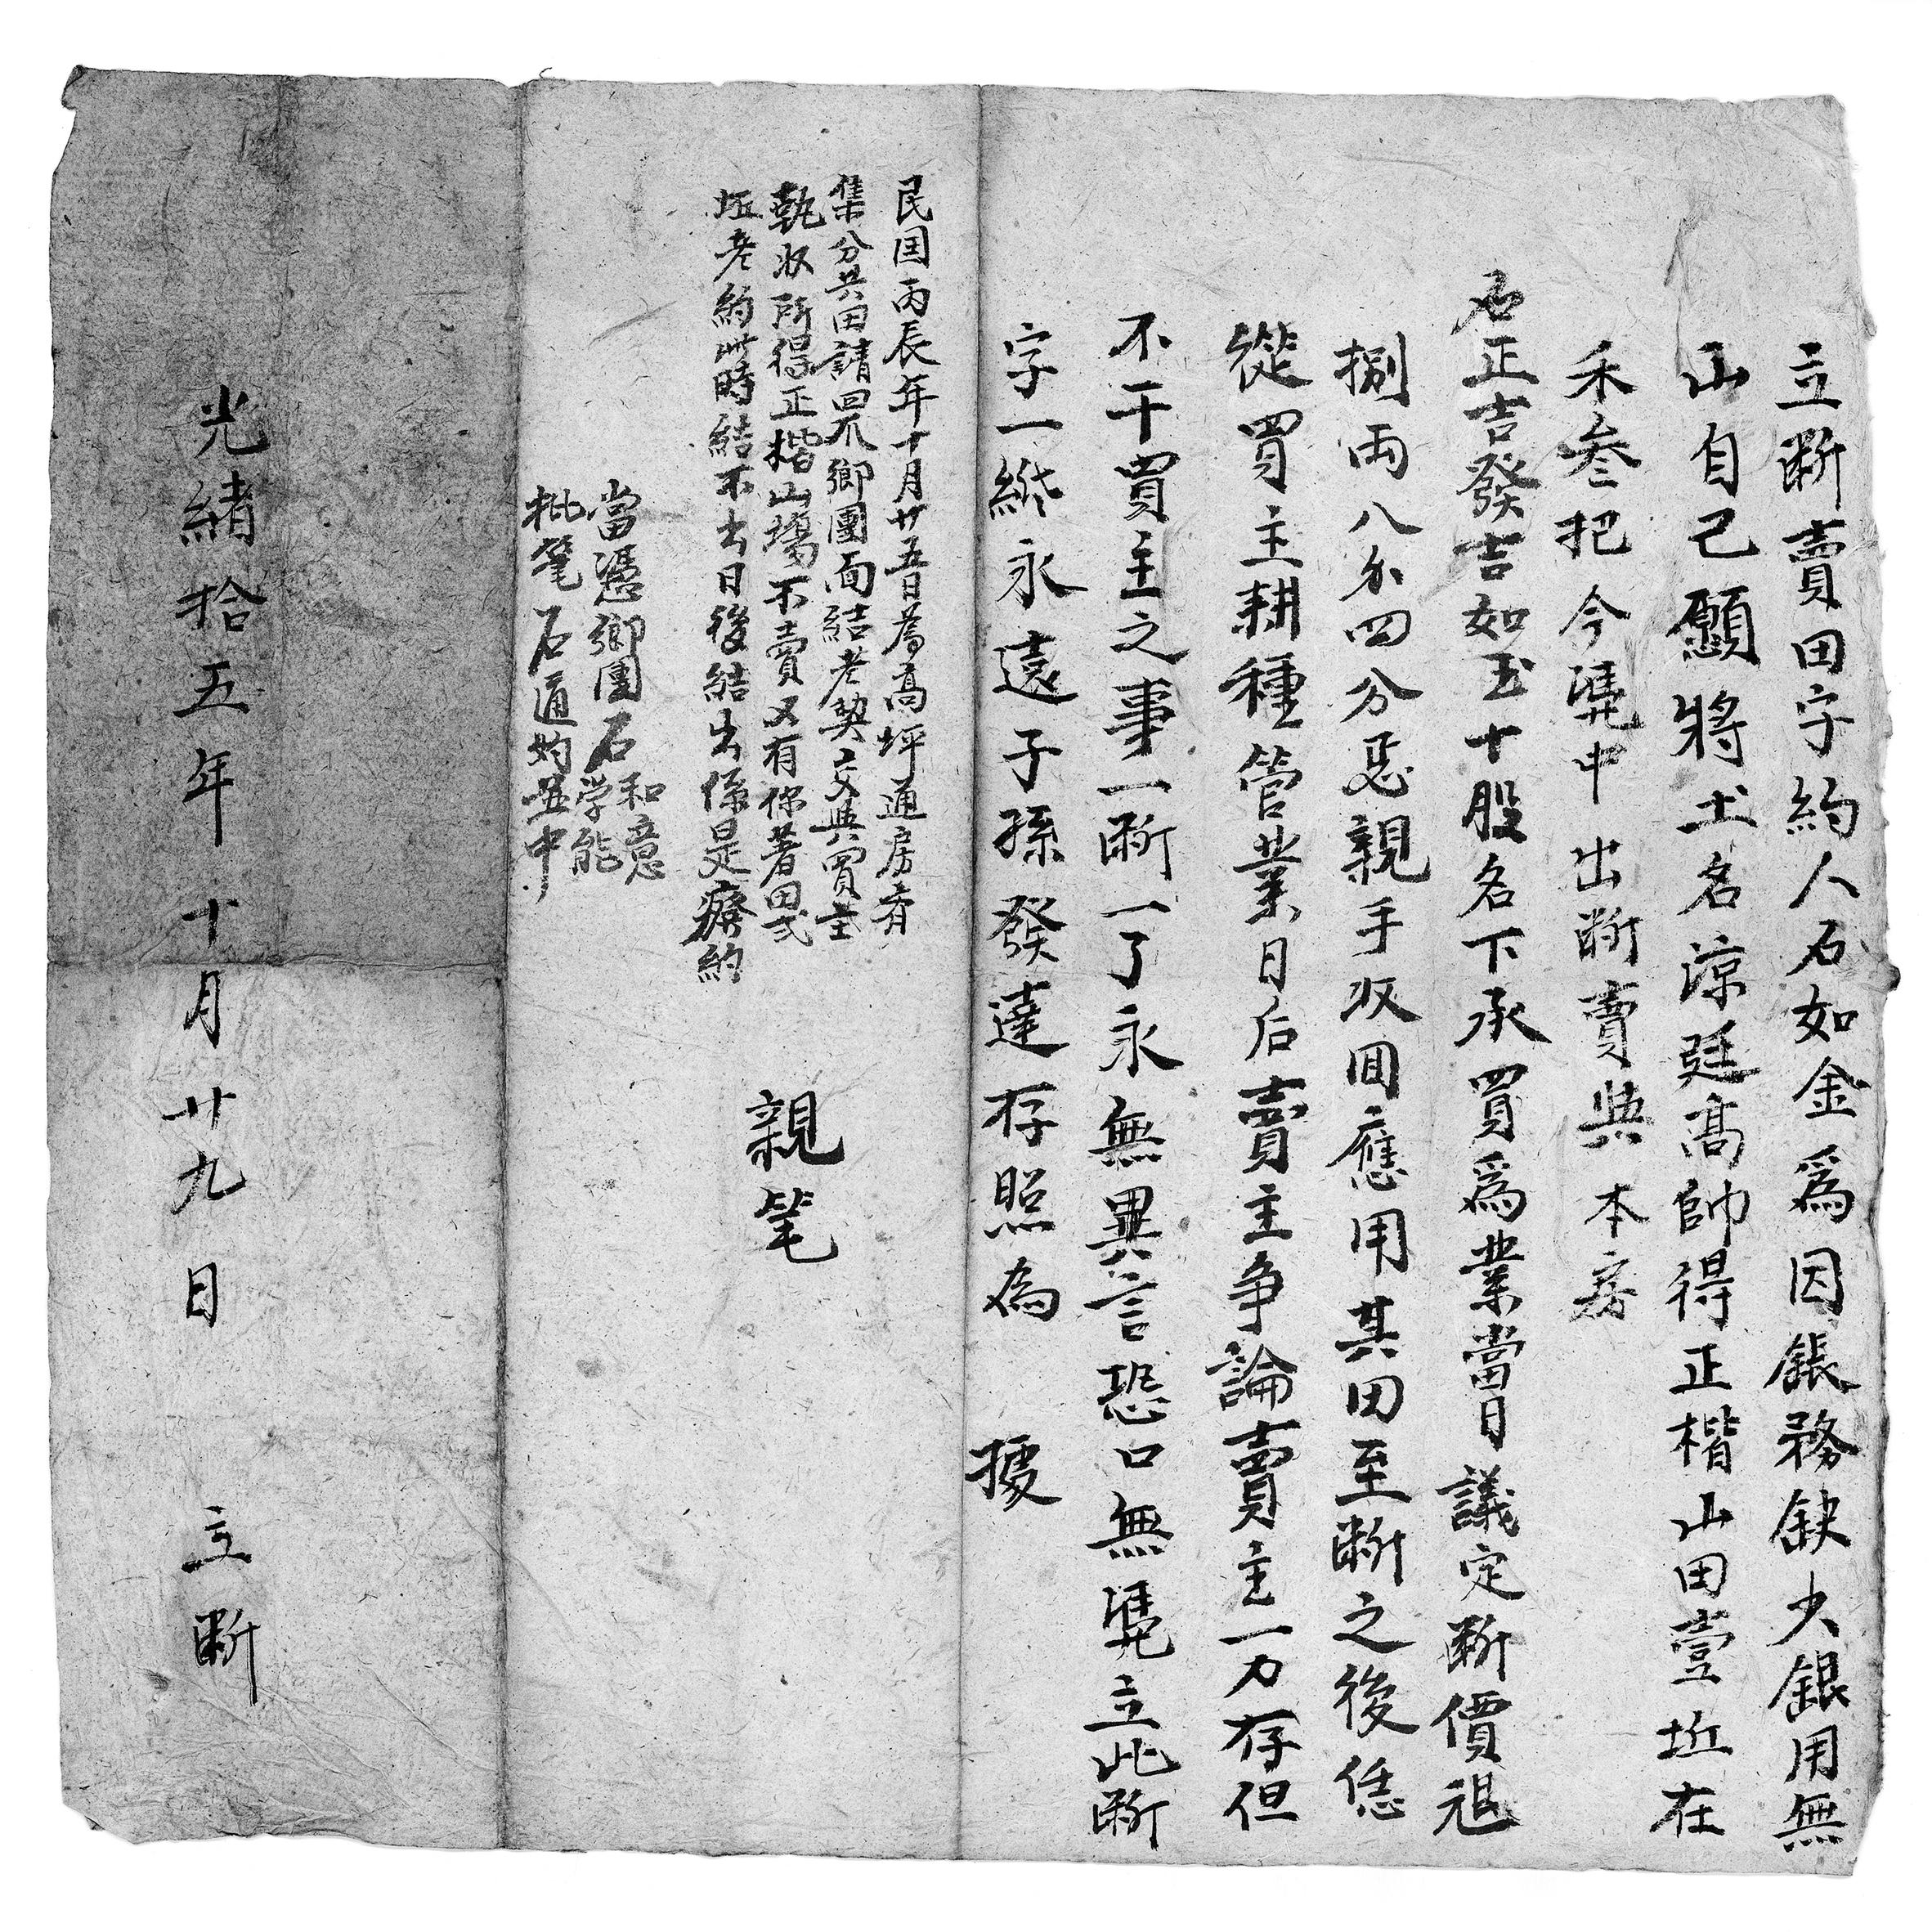 立断賣田字約人石如金爲因銀務缺少銀用無
山自己願將土名凉廷高帥得正楷山田壹坵在
禾叁把今凴中出断賣與本房
石正吉發吉如玉十股名下承買爲業當日議定断價
捌両八分四分親手收囬應用其田至断之後恁
從買主耕種管業日后賣主争論賣主一力存但
不干買主之事一断一了永無異言恐口無凴立此断
字一紙永遠子孫發達存照為 據
民国丙辰年十月廿五日為高坪通房
集分共田請回鄉團面結老契交與買主
執收所得正楷山塲不賣又有
坵老約此時結不出日後結出係是癈約
當憑鄉團石和意
学能
批筆石通灼
親笔
光緒拾五年十月廿九日 立断